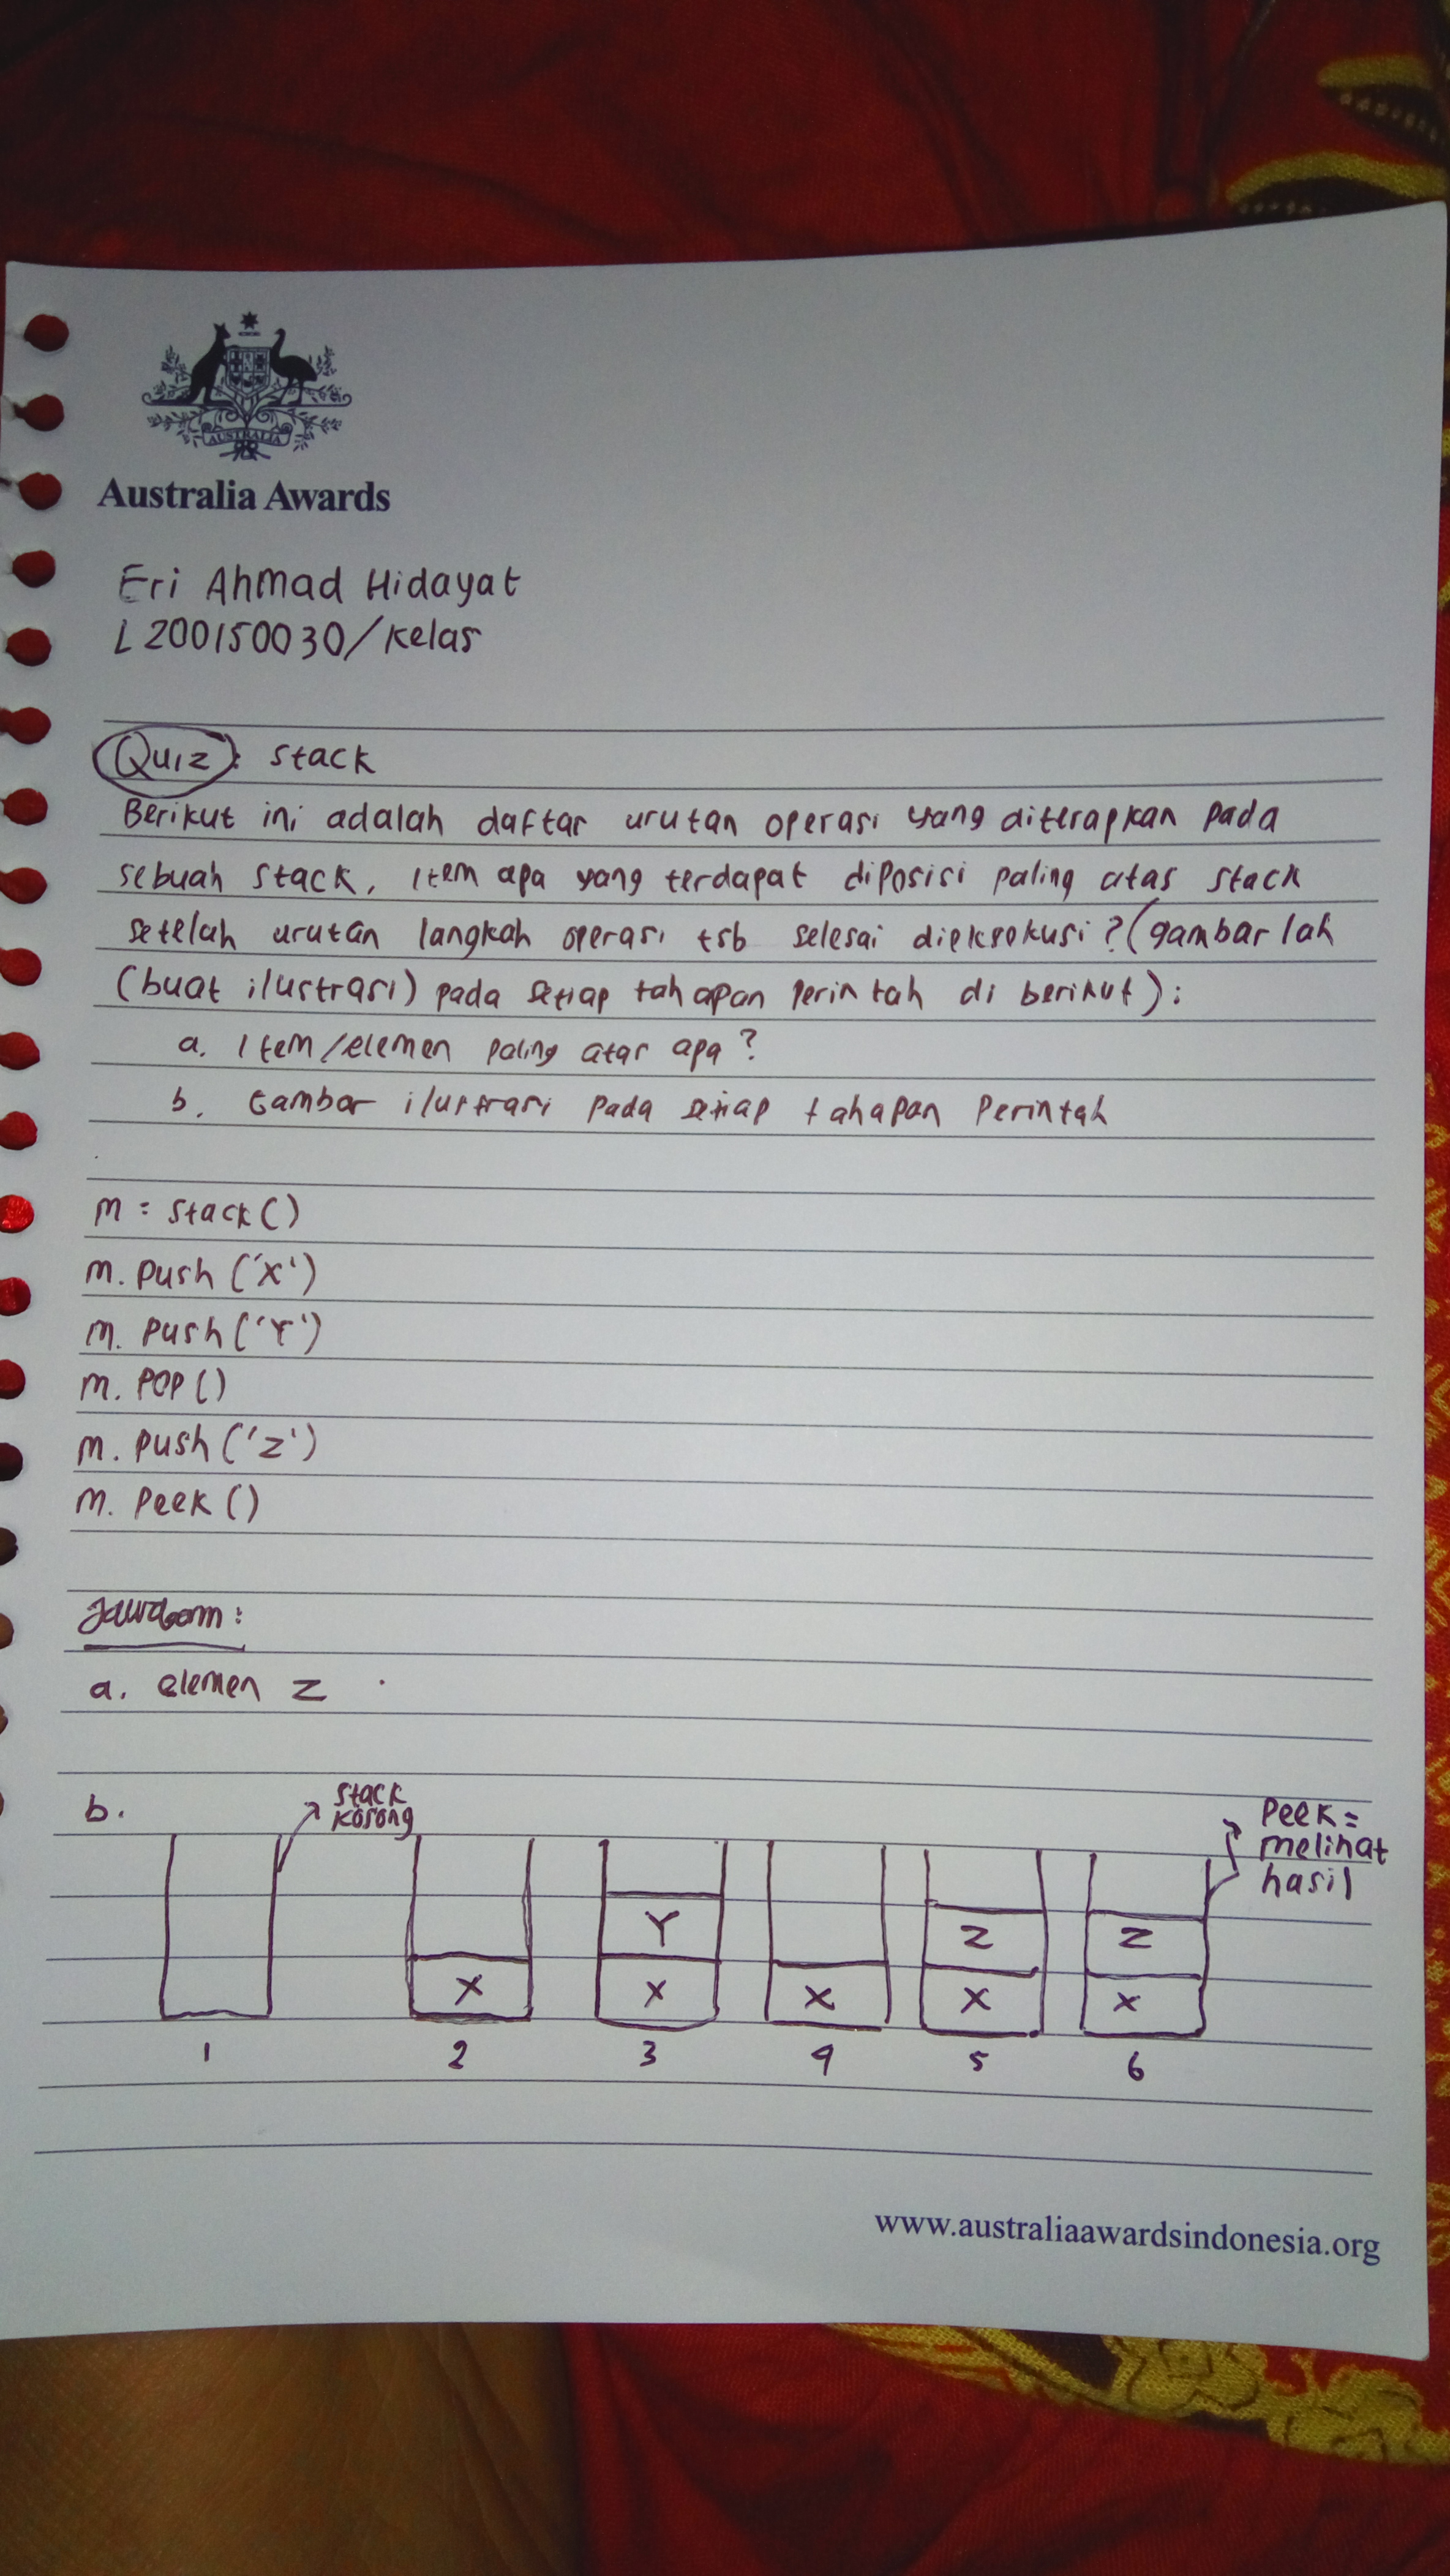 AUSTRALIA
Australia Awards
Eri Ahmad Hidayat
L200150030/Kelas
Quiz : Stack
Berikut ini adalah daftar urutan operasi yang diterapkan pada
sebuah stack, Item apa yang terdapat diposisi paling atas stack
setelah urutan langkah operasi tsb selesai dieksekusi? (gambarlah
(buat ilustrasi) pada setiap tahapan perintah di berikut) :
a. Item/elemen paling atas apa?
b. Gambar ilustrasi pada setiap tahapan Perintah
m = Stack()
m. push ('X')
m. push ('Y')
m. pop ()
m. push ('Z')
m. Peek ()
Jawaban :
a. elemen Z
b.
Stack
kosong
Peek =
melihat
hasil
Y Z Z
X X X X X
1 2 3 4 5 6
www.australiaawardsindonesia.org